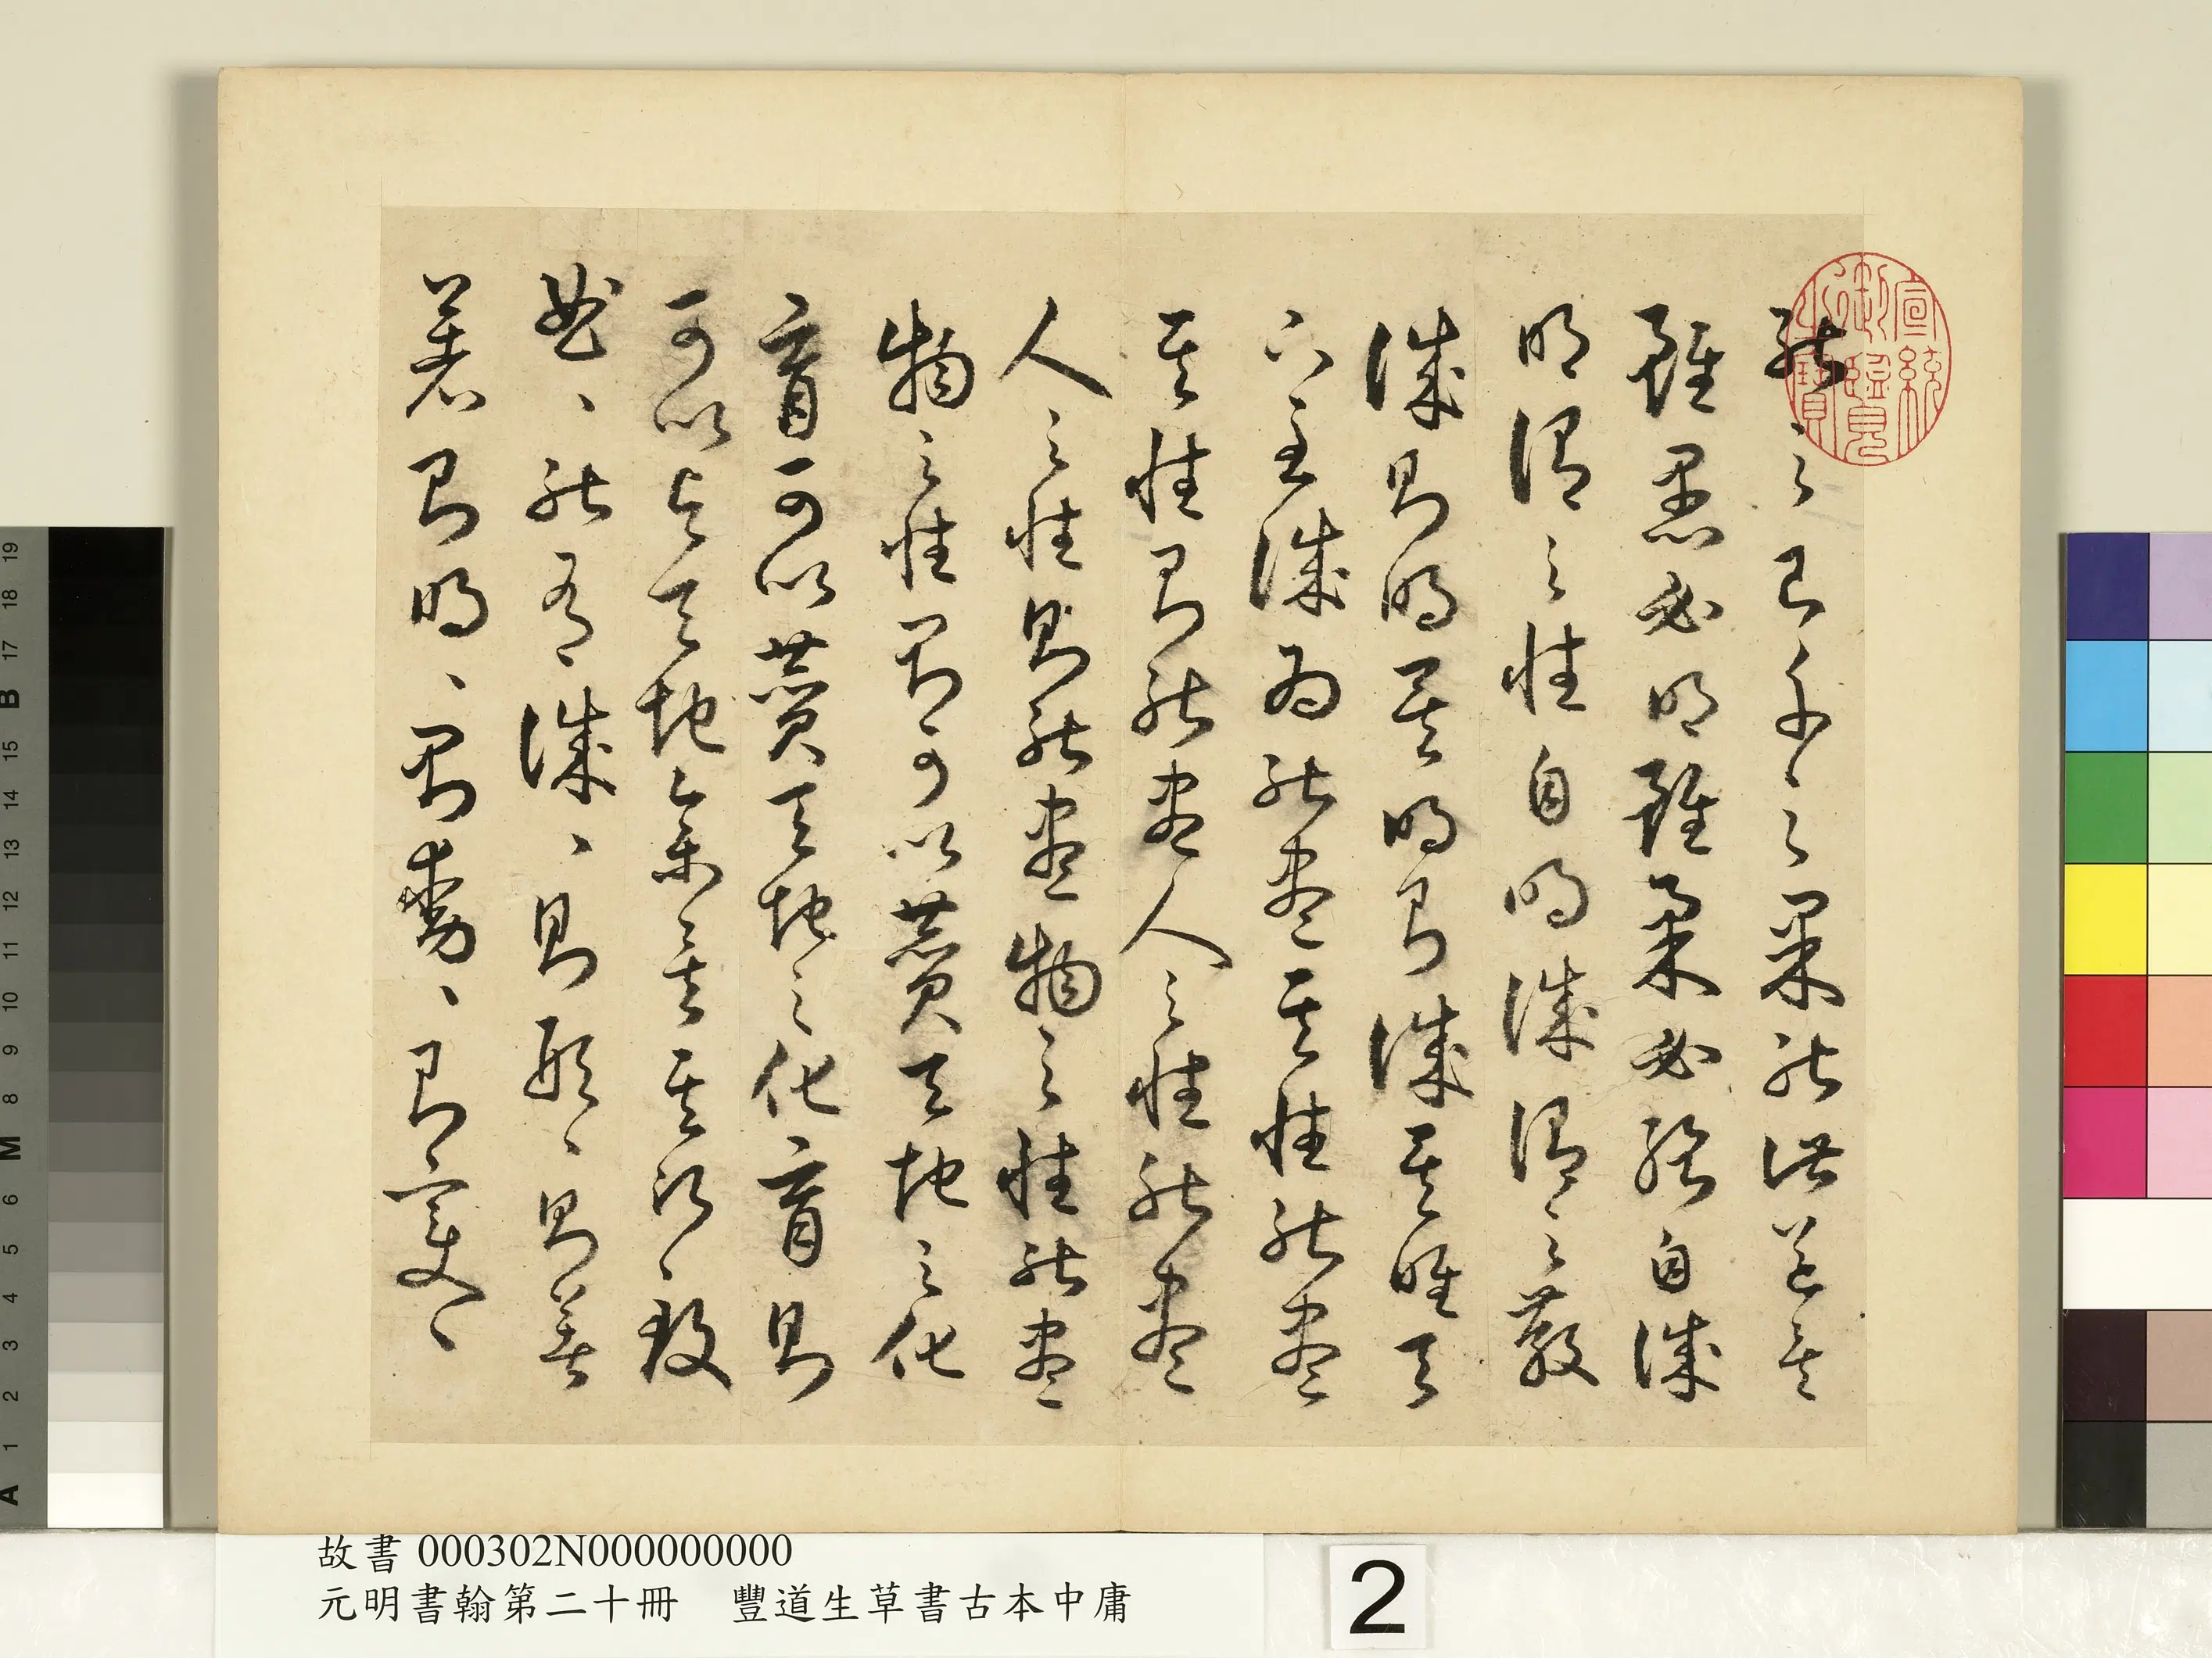 能之己千之果能此道矣
雖愚必明雖柔必強自誠
明謂之性自明誠謂之教
誠則明矣明則誠矣唯天
下至誠為能盡其性能盡
其性則能盡人之性能盡
人之性則能盡物之性能盡
物之性則可以贊天地之化
育可以贊天地之化育則
可以與天地參矣其次致
曲、能有誠、則形、則著
著則明、則動、則變、
宣統御覽之寶
故書 000302N000000000
元明書翰第二十冊 豐道生草書古本中庸
2
A 1 2 3 4 5 6 M 8 9 10 11 12 13 14 15 B 17 18 19